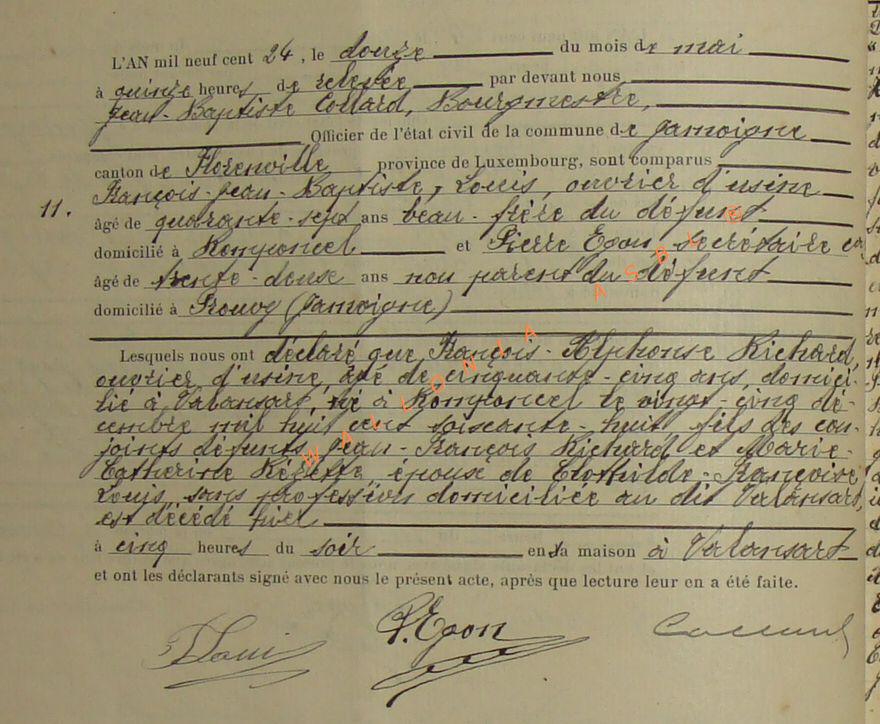 L'AN mil neuf cent 24, le douze du mois de mai
à quinze heures de relevée par devant nous
Jean-Baptiste Collard, Bourgmestre,
Officier de l'état civil de la commune de Jamoigne
canton de Florenville province de Luxembourg, sont comparus
11. François-Jean-Baptiste, Louis, ouvrier d'usine
âgé de quarante-sept ans beau-frère du défunt
domicilié à Romponcel et Pierre Egon, secrétaire
âgé de trente-deux ans non parent du défunt
domicilié à Prouvy (Jamoigne)
Lesquels nous ont déclaré que François-Alphonse Richard,
ouvrier d'usine, âgé de cinquante-cinq ans, domici-
lié à Valansart, né à Romponcel le vingt-cinq dé-
cembre mil huit cent soixante-huit fils des con-
joints défunts Jean-François Richard et Marie-
Catherine époux de Clothilde-Françoise
Louis, sans profession domiciliée au dit Valansart,
est décédé hier
à cinq heures du soir en sa maison à Valansart
et ont les déclarants signé avec nous le présent acte, après que lecture leur en a été faite.
Louis P. Egon Collard
WALLONIA ASBL